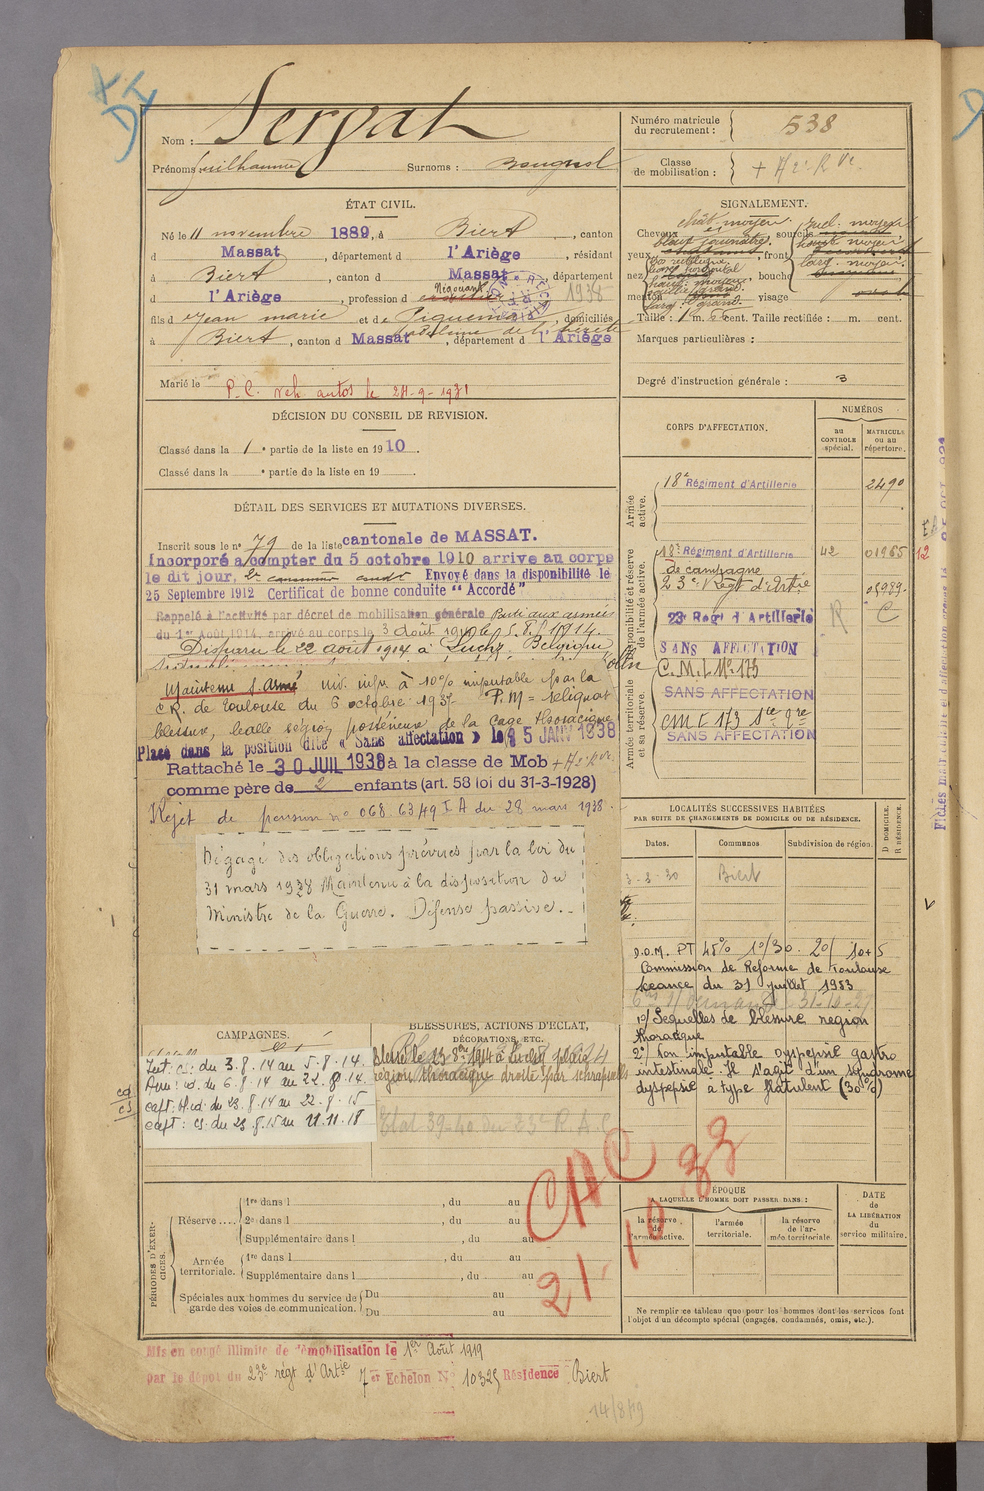 DI
Nom : Servat
Prénoms : Guilhaume Surnoms : Bougnol
Numéro matricule
du recrutement : 538
Classe
de mobilisation : + H 2e R Ve
ÉTAT CIVIL.
Né le 11 novembre 1889, à Biert, canton
d Massat, département d l'Ariège, résidant
à Biert, canton d Massat, département
d l'Ariège, profession d Négociant 1938
fils d Jean marie et d e Piquemal
à Biert, canton d Massat, département d l'Ariège
domiciliés
Marié le
P.C. veh. autos le 24-9-1931
SIGNALEMENT.
Cheveux chât. moyen. sourcils
yeux bleut jaunâtre, front
nez, bouche
menton visage
Taille : 1 m. cent. Taille rectifiée : m. cent.
Marques particulières :
Degré d'instruction générale : 3
DÉCISION DU CONSEIL DE REVISION.
Classé dans la 1e partie de la liste en 1910.
Classé dans la e partie de la liste en 19 .
DÉTAIL DES SERVICES ET MUTATIONS DIVERSES.
Inscrit sous le n° 79 de la liste cantonale de MASSAT.
Incorporé à compter du 5 octobre 1910 arrive au corps
le dit jour, 2e canonnier condt Envoyé dans la disponibilité le
25 Septembre 1912 Certificat de bonne conduite "Accordé"
Rappelé à l'activité par décret de mobilisation générale Parti aux armées
du 1er Août 1914, arrivé au corps le 3 août 1914 le 5.8.1914.
Disparu le 22 août 1914 à Luchy Belgique
Maintenu s. Armé inv. infr à 10% imputable par la
C.R. de Toulouse du 6 octobre 1937 P.M = reliquat
blessure, balle région postérieure de la cage thoracique
Placé dans la position dite « Sans affectation » le 15 JANV 1938
Rattaché le 30 JUIL 1938 à la classe de Mob + H 2e R Ve
comme père de 2 enfants (art. 58 loi du 31-3-1928)
Rejet de pension n° 068.6349 I A du 28 mars 1938.
Dégagé des obligations prévues par la loi du
31 mars 1928 Maintenu à la disposition du
Ministre de la Guerre. Défense passive.
CORPS D'AFFECTATION.
NUMÉROS
au
CONTROLE
spécial.
MATRICULE
ou au
répertoire.
Armée
active.
18e Régiment d'Artillerie 2490
Disponibilité et réserve
de l'armée active.
18e Régiment d'Artillerie 42 01965
de campagne
23e Régt d'Artie 05989
23e Régt d'Artillerie R C
SANS AFFECTATION
Armée territoriale
et sa réserve.
C.M.I. N° 173
SANS AFFECTATION
CM I 173
SANS AFFECTATION
12
LOCALITÉS SUCCESSIVES HABITÉES
PAR SUITE DE CHANGEMENTS DE DOMICILE OU DE RÉSIDENCE.
Dates. Communes Subdivision de région.
D DOMICILE.
R RÉSIDENCE.
3-3-30 Biert
D.O.M. PT 45% 1°/30. 2°/ 10+5
Commission de Réforme de Toulouse
séance du 31 juillet 1953
1°/ Sequelles de blessure region
thoracique
2°/ non imputable dyspepsie gastro
intestinale. Il s'agit d'un syndrome
dyspepsie à type flatulent (30%)
CAMPAGNES.
Int: cs: du 3.8.14 au 5.8.14.
Aux: id. du 6.8.14 au 22.8.14.
capt: bl.ed: du 23.8.14 au 22.8.15
capt: cs. du 23.8.15 au 11.11.18
BLESSURES, ACTIONS D'ÉCLAT,
DÉCORATIONS, ETC.
région thoracique droite par schrapnells
Etat 39-40 du 23e R.A.C
CAC 33
21-10
PÉRIODES D'EXERCICES.
Réserve ....
1re dans l , du au
2e dans l , du au
Supplémentaire dans l , du au
Armée
territoriale.
1re dans l , du au
Supplémentaire dans l , du au
Spéciales aux hommes du service de
garde des voies de communication.
Du au
Du au
ÉPOQUE
A LAQUELLE L'HOMME DOIT PASSER DANS :
la réserve
de
l'armée active.
l'armée
territoriale.
la réserve
de l'ar-
mée territoriale.
DATE
DE
LA LIBÉRATION
du
service militaire.
Ne remplir ce tableau que pour les hommes dont les services font
l'objet d'un décompte spécial (engagés, condamnés, omis, etc.).
Mis en congé illimité de démobilisation le 1er Août 1919
par le dépôt du 23e régt d'Artie 7e Echelon N° 10325 Résidence Biert
14/8/19